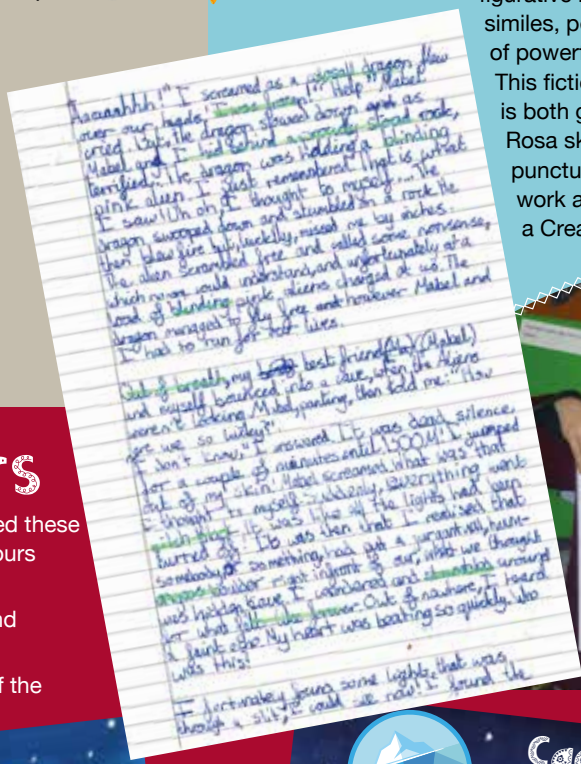 figurative
similes, po
of power
This fictio
is both g
Rosa sk
punctu
work a
a Crea
Aaaaahhh!" I screamed as a dragon flew
over our heads! "I was frozen!" "Help" Mabel
cried. But, the dragon slowed down and as
Mabel and I hid behind a stood rock,
terrified. The dragon was holding a blinding
pink alien. I just remembered that is what
I saw! Uh oh I thought to myself... The
dragon swooped down and stumbled on a rock. He
then blew fire but luckily, missed me by inches.
The alien scrambled free and called some nonsense,
which no-one would understand, and unfortunately a
load of blinding pink aliens charged at us. The
dragon managed to fly free and however Mabel and
I had to run for our lives.
Out of breath, my best friend (Mabel)
and myself bounced into a cave, when the Aliens
weren't looking. Mabel, panting, then told me: "How
are we so lucky?"
"I don't know," I answered. It was dead silence,
for a couple of minutes until I jumped
out of my skin! Mabel screamed. What was that
I thought to myself. Suddenly, everything went
pitch-black. It was like all the lights had been
turned off. It was then that I realised that
somebody or something, had put a
boulder right infront of our, what we thought
was hidden cave. I wandered and around
for what felt like forever. Out of nowhere, I heard
a faint echo. My heart was beating so quickly. Who
was this?
I fortunately found some light, that was
through a slit, I could see now! I found the
TS
ed these
ours
nd
f the